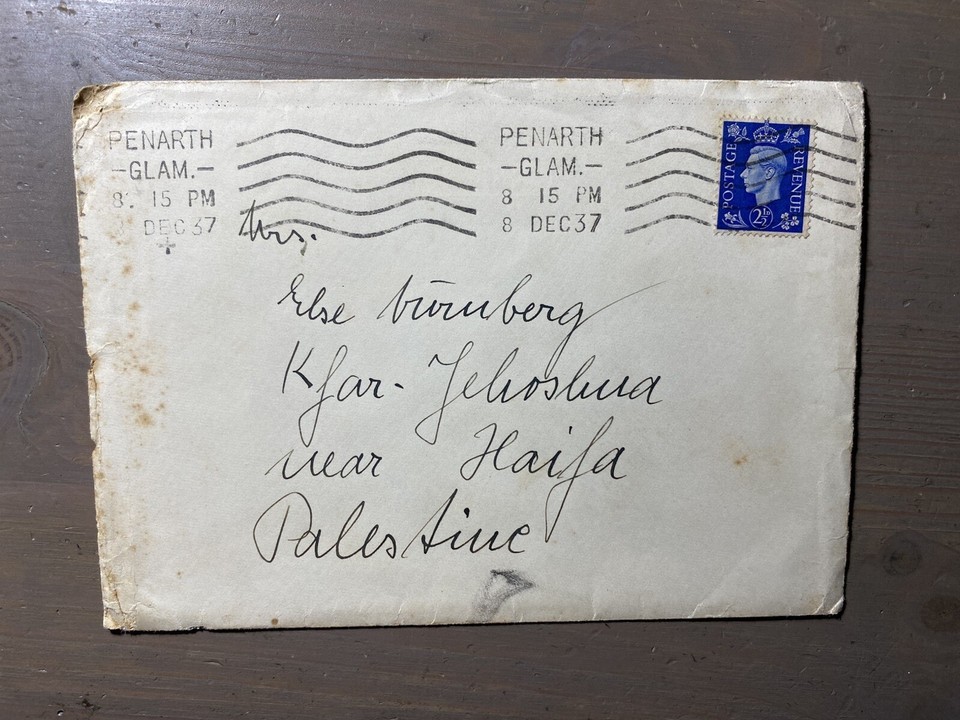 PENARTH
-GLAM.-
8. 15 PM
DEC 37
PENARTH
-GLAM.-
8 15 PM
8 DEC37
POSTAGE
REVENUE
2½D
Mrs.
Else Nürnberg
Kfar-Jehoshua
near Haifa
Palestine